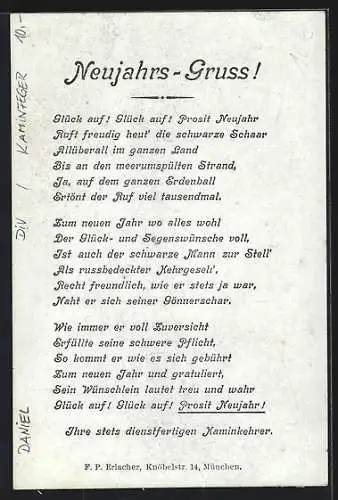 Neujahrs-Gruss!
Glück auf! Glück auf! Prosit Neujahr
Ruft freudig heut' die schwarze Schaar
Allüberall im ganzen Land
Bis an den meerumspülten Strand,
Ja, auf dem ganzen Erdenball
Ertönt der Ruf viel tausendmal.
Zum neuen Jahr wo alles wohl
Der Glück- und Segenswünsche voll,
Ist auch der schwarze Mann zur Stell'
Als russbedeckter Kehrgesell',
Recht freundlich, wie er stets ja war,
Naht er sich seiner Gönnerschar.
Wie immer er voll Zuversicht
Erfüllte seine schwere Pflicht,
So kommt er wie es sich gebührt
Zum neuen Jahr und gratuliert,
Sein Wünschlein lautet treu und wahr
Glück auf! Glück auf! Prosit Neujahr!
Ihre stets dienstfertigen Kaminkehrer.
F. P. Erlacher, Knöbelstr. 14, München.
DANIEL DIV / KAMINFEGER 10,-